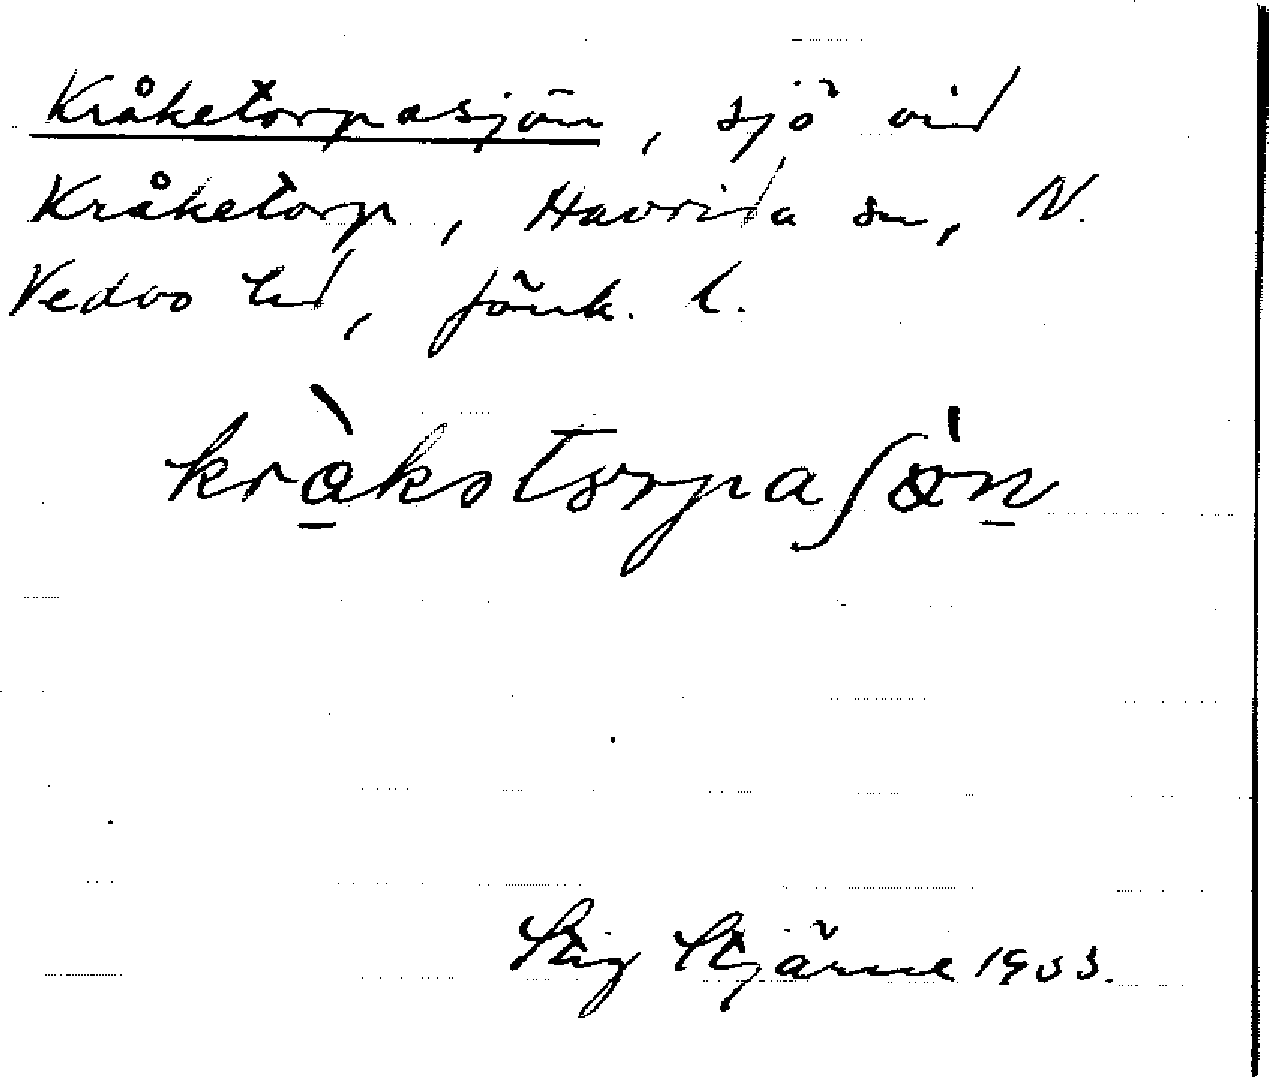 Kråketorpasjön, sjö vid
Kråketorp, Haurida sn, N.
Vedbo hd, Jönk. l.
krå̱̀kətorpaʃø̍n̠
Stig Stjärne 1933.